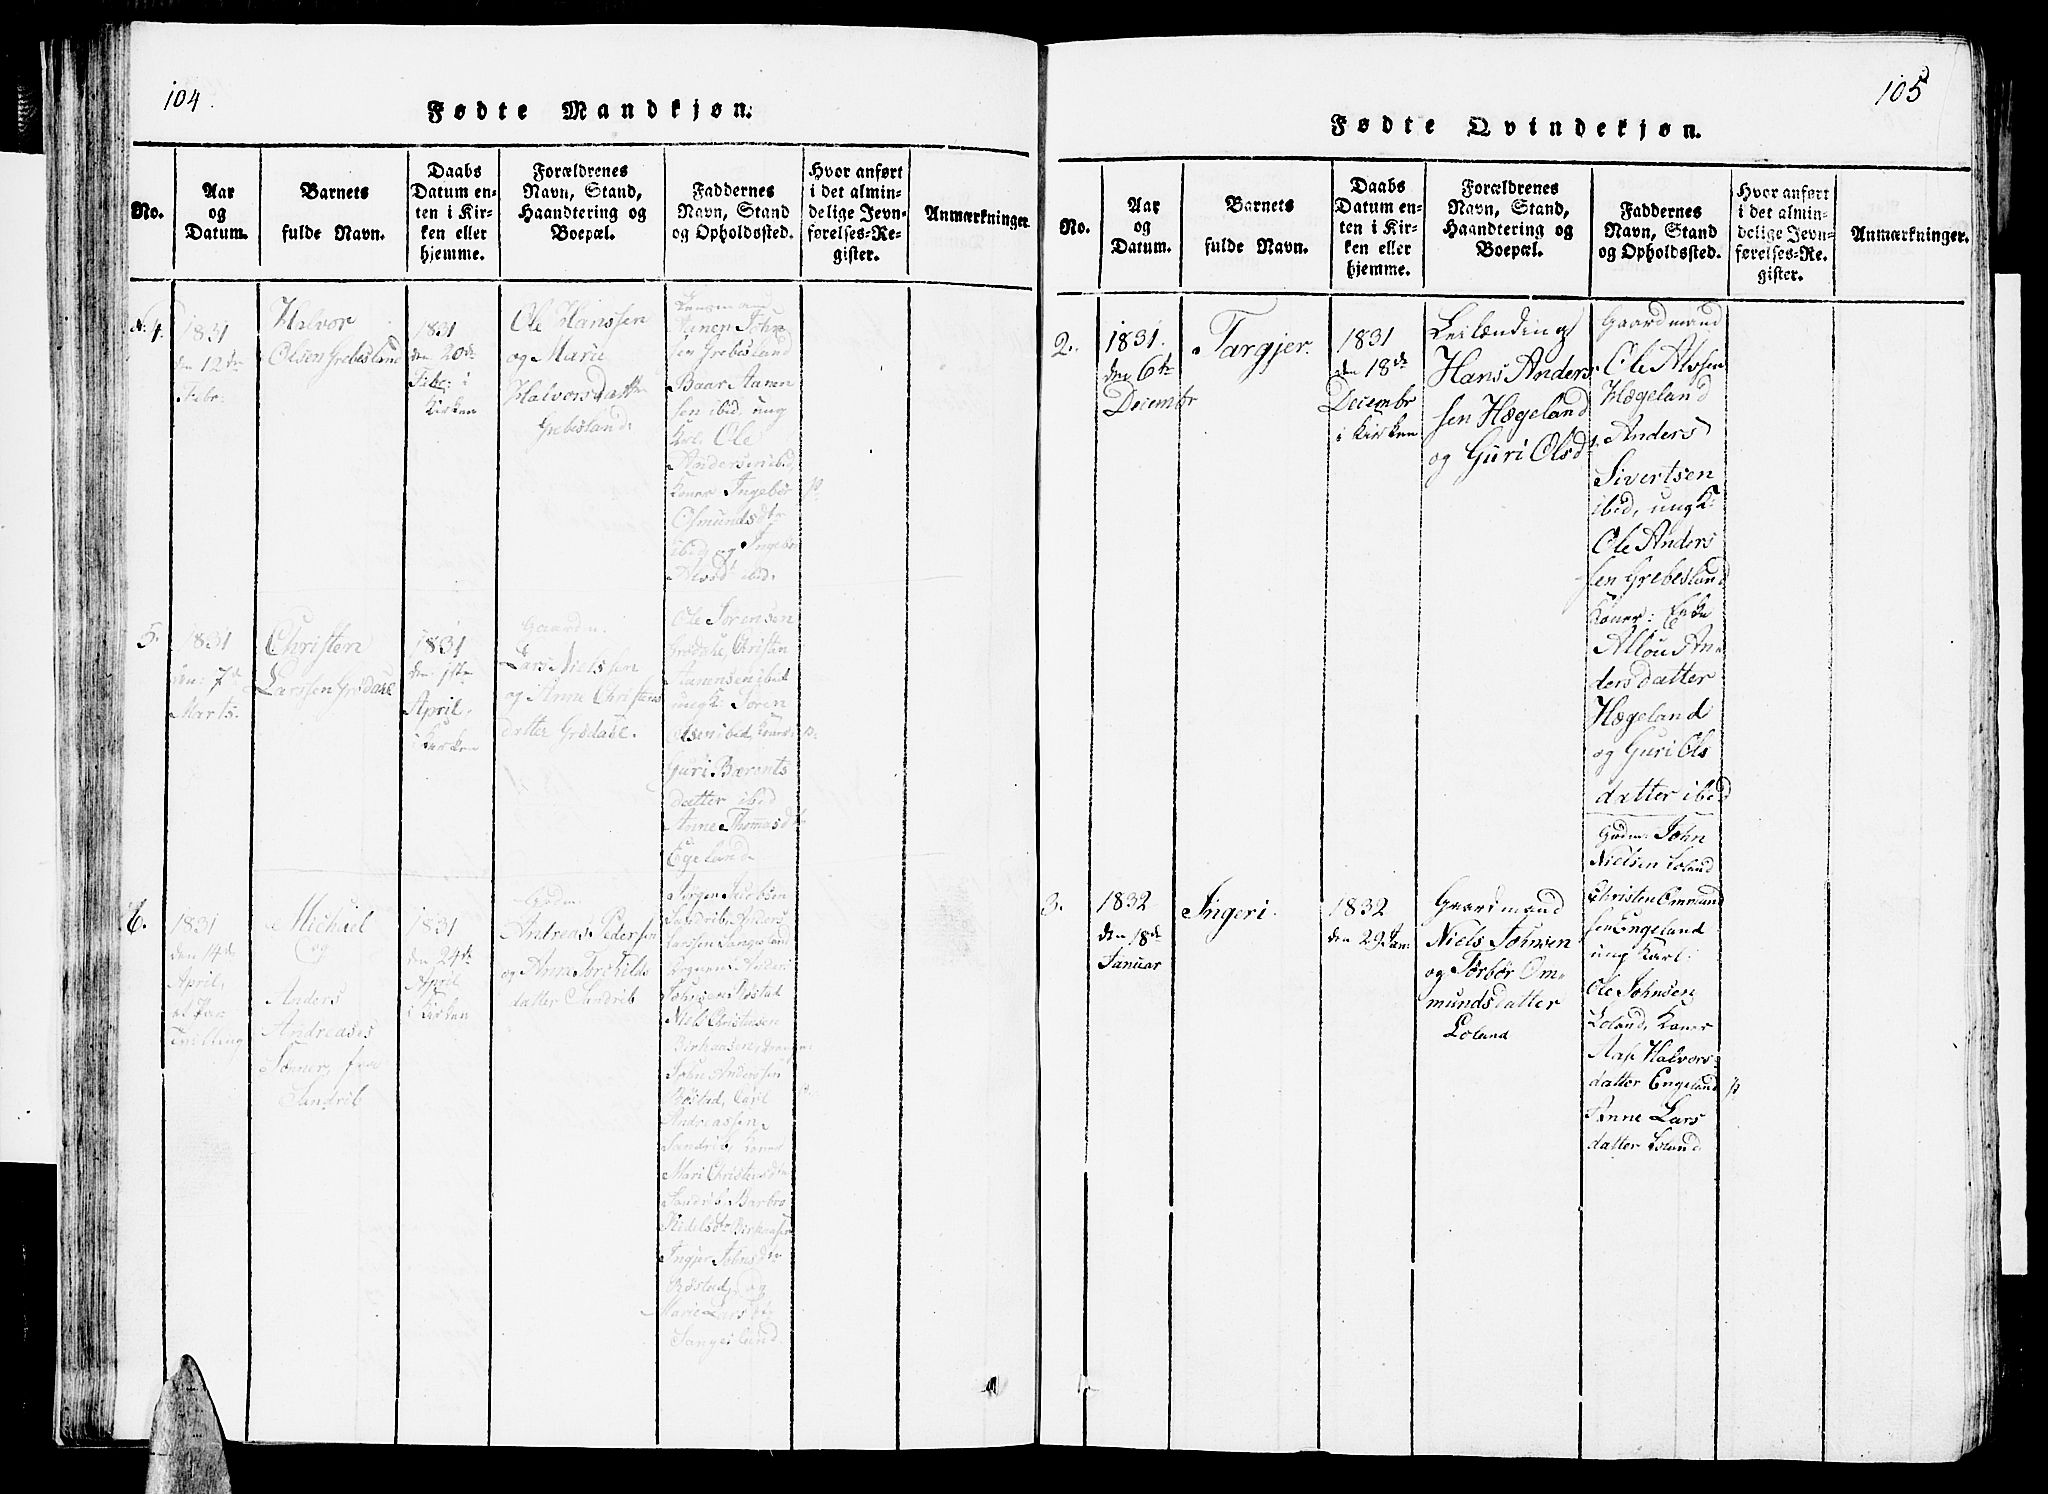 104.
Fødte Mandkjøn.
No.
Aar
og
Datum.
Barnets
fulde Navn.
Daabs
Datum en-
ten i Kir-
ken eller
hjemme.
Forældrenes
Navn, Stand,
Haandtering og
Boepæl.
Faddernes
Navn, Stand
og Opholdssted.
Hvor anført
i det almin-
delige Jevn-
førelses-Re-
gister.
Anmærkninger.
No. 4.
1831
den 12te
Febr.
Halvor
Olsen Grebesland
1831
den 20de
Febr: i
Kirken
Ole Hanssen
og Marie
Halvorsdatter
Grebesland.
Lensmand
Aanen John
sen Grebesland
Baar Aanen
sen ibid, ung
Karl Ole
Andersen ibid,
Koner Ingebor
Osmundsdtr
ibid, og Ingebor
ibid.
5.
1831
den 7de
Marts.
Christen
Larssen Grødale
1831
den 1ste
April.
i Kirken
Gaardm.
Lars Nielssen
og Anne Christens
datter Grødale.
Ole Sørensen
Grødale, Christen
Aanensen ibid
ungk: Søren
Olsen ibid, Koner:
Guri Bærents
datter ibid
Anne Thomasd
Egeland
6.
1831
den 14de
April,
Tvilling
Michael
og
Anders
Andreases
Sønner, fra
Sandrib
1831
den 24de
April
i Kirken
Gdm.
Andreas Pedersen
og Anna Torchilds
datter Sandrib
Jørgen Jacobsen
Sandrib, Anders
Larssen Sangesland
Johnsen Røstad
Niels Christensen
Birkaasen,
John Anderssen
Røstad, Carl
Andreassen
Sandrib, Koner
Mari Christensdtr
Sandrib, Barbro
Birkaasen
Ingjer Johnsdtr
Røstad, og
Marie Larsdtr
Sangesland.
105
Fødte Qvindekjøn.
No.
Aar
og
Datum.
Barnets
fulde Navn.
Daabs
Datum en-
ten i Kir-
ken eller
hjemme.
Forældrenes
Navn, Stand,
Haandtering og
Boepæl.
Faddernes
Navn, Stand
og Opholdssted.
Hvor anført
i det almin-
delige Jevn-
førelses-Re-
gister.
Anmærkninger.
2.
1831.
den 6te
Decembr
Targjer.
1831
den 18de
Decembr
i Kirken
Leilænding
Hans Anders
sen Hægeland
og Guri Olsd.
Gaardmand
Ole Alssen
Hægeland
Anders
Sivertsen
ibid, ungk:
Ole Anders
sen Grebesland
Koner: Enke
Allou An-
dersdatter
Hægeland
og Guri Ols
datter ibid
3.
1832
den 18de
Januar
Ingeri.
1832
den 29 Jan:
Gaardmand
Niels Johnsen
og Torbor Om-
mundsdatter
Loland
Gdm: John
Nielsen Loland
Christen Ommund
sen Engeland
ung Karl:
Ole Johnsen
Loland, Koner
Aas: Halvors-
datter Engeland
Anne Lars
datter Loland